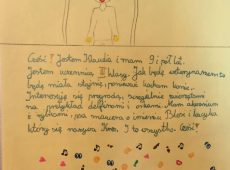 Cześć! Jestem Klaudia i mam 9 i pół lat.
Jestem uczennicą III klasy. Jak będę weterynarzem to
będę miała stajnię, ponieważ kocham konie.
Interesuję się przyrodą, szczególnie zwierzętami
na przykład delfinami i orkami. Mam akwarium
z rybkami, psa imieniem Blon i kacyka
który się nazywa Kra. I to wszystko. Cześć!